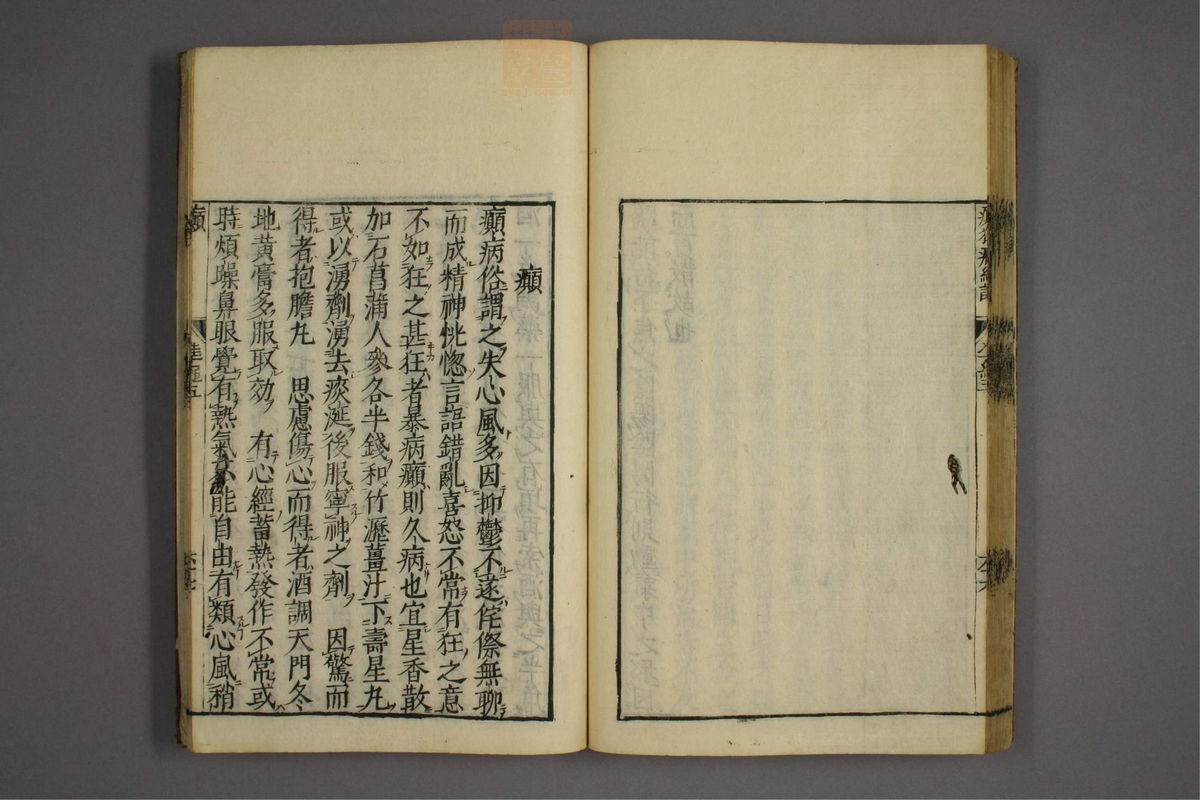 癲
癲病俗謂之失心風多因抑鬱不遂侘傺無聊
而成精神恍惚言語錯亂喜怒不常有狂之意
不如狂之甚狂者暴病癲則久病也宜星香散
加石菖蒲人參各半錢和竹瀝薑汁下壽星丸
或以湧劑湧去痰涎後服寧神之劑　因驚而
得者抱膽丸　思慮傷心而得者酒調天門冬
地黃膏多服取効　有心經蓄熱發作不常或
時煩躁鼻眼覺有熱氣不能自由有類心風稍
癲